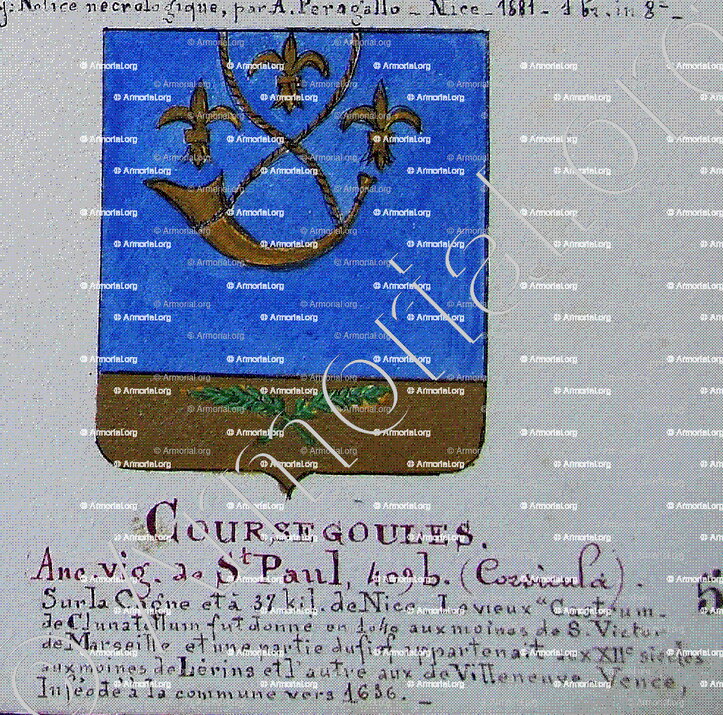 : Notice nécrologique, par A. Peragallo - Nice - 1881 - 1 br. in 8°-
COURSEGOULES.
Anc. vig. de St Paul, 409 h. (Corsicula).
Sur la Cagne et à 37 kil. de Nice. Le vieux "Castrum
de Clunatillum fut donné en 1040 aux moines de St. Victor
de Marseille et une partie du fief appartenait XIIe siècles
aux moines de Lérins et l'autre aux de Villeneuve-Vence,
Inféodé à la commune vers 1636. -
5
© Armorial.org
Armorial.org